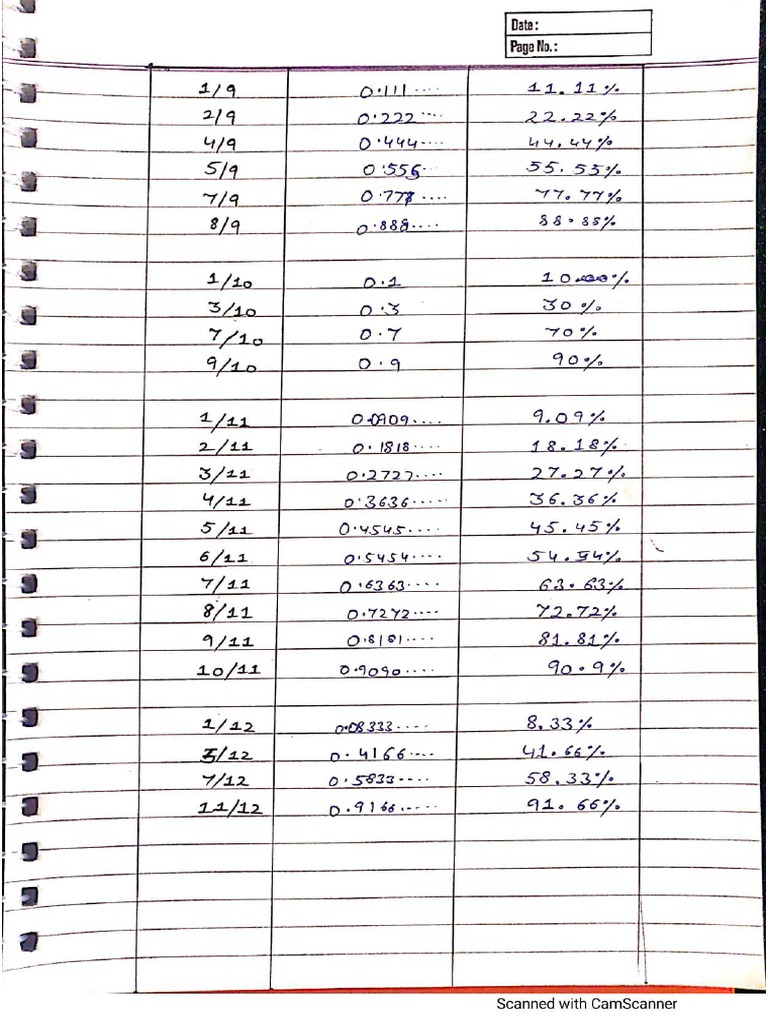 Date:
Page No.:
1/9 0.111.... 11.11%
2/9 0.222.... 22.22%
4/9 0.444.... 44.44%
5/9 0.556... 55.55%
7/9 0.778.... 77.77%
8/9 0.888.... 88.88%
1/10 0.1 10.00%
3/10 0.3 30%
7/10 0.7 70%
9/10 0.9 90%
1/11 0.0909.... 9.09%
2/11 0.1818.... 18.18%
3/11 0.2727.... 27.27%
4/11 0.3636..... 36.36%
5/11 0.4545.... 45.45%
6/11 0.5454.... 54.54%
7/11 0.6363.... 63.63%
8/11 0.7272.... 72.72%
9/11 0.8181.... 81.81%
10/11 0.9090.... 90.9%
1/12 0.08333.... 8.33%
5/12 0.4166.... 41.66%
7/12 0.5833.... 58.33%
11/12 0.9166..... 91.66%
Scanned with CamScanner